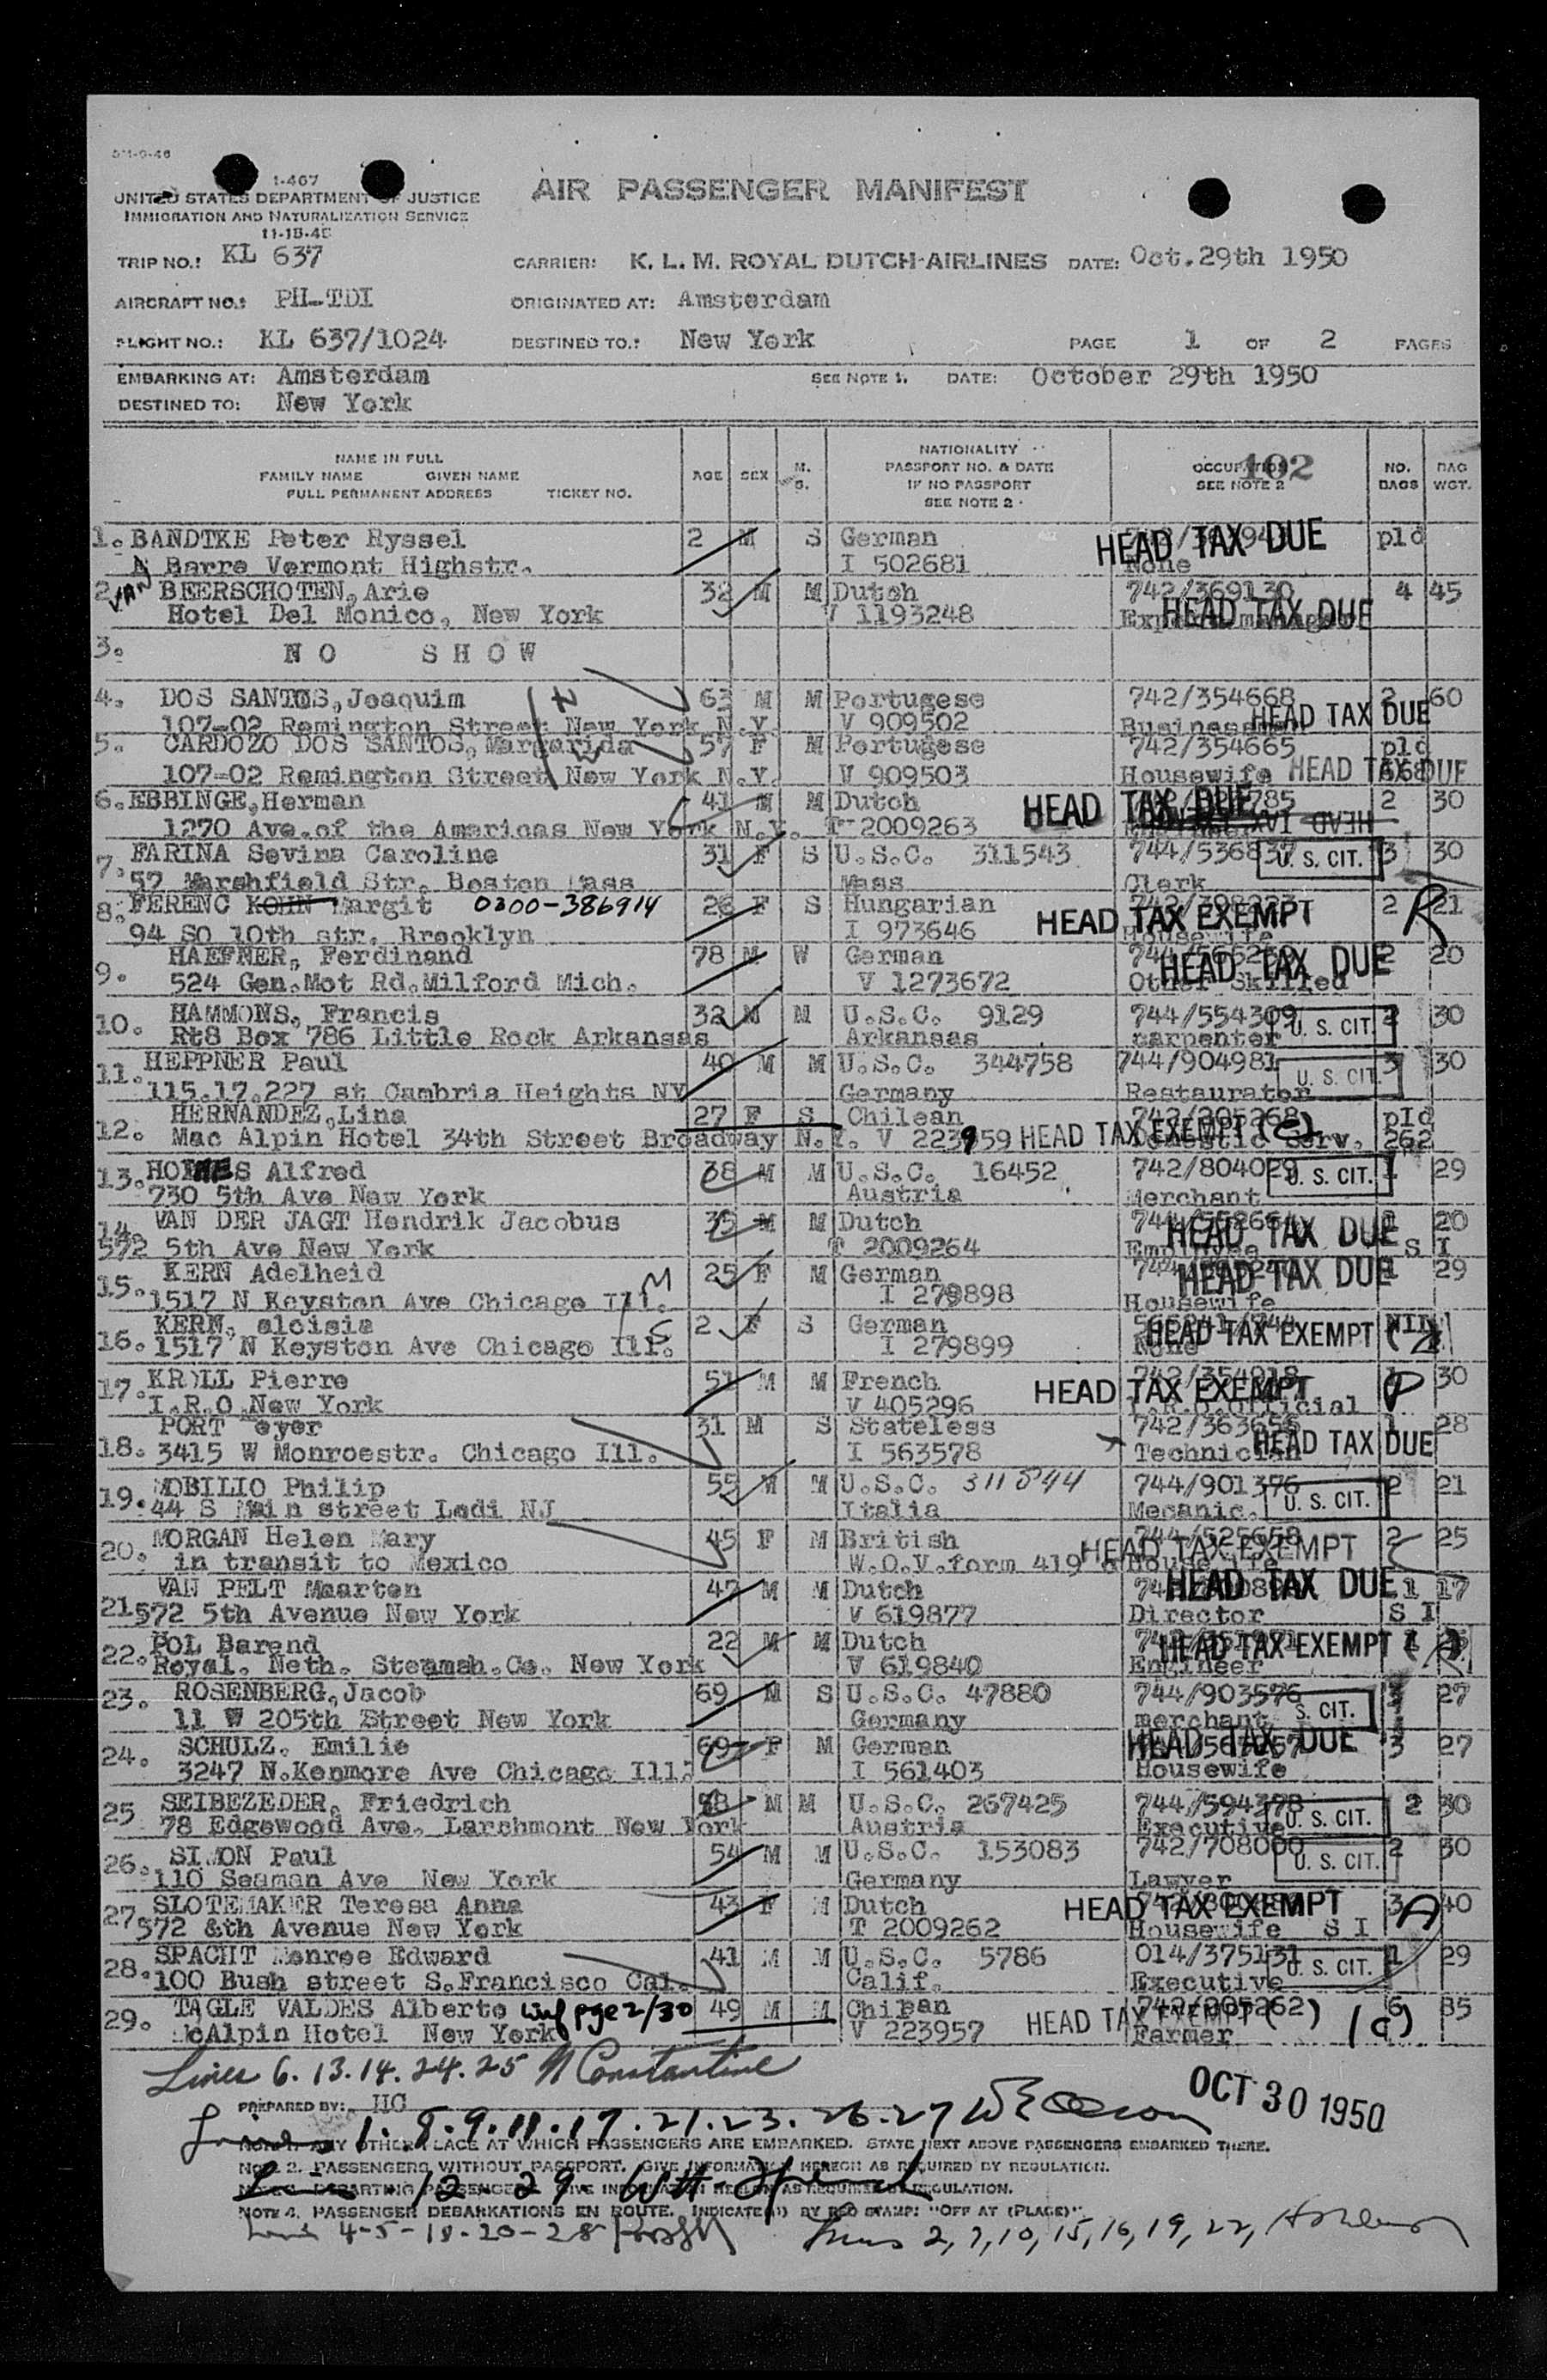 I-467
UNITED STATES DEPARTMENT OF JUSTICE
IMMIGRATION AND NATURALIZATION SERVICE
AIR PASSENGER MANIFEST
TRIP NO.: KL 637
CARRIER: K. L. M. ROYAL DUTCH AIRLINES DATE: Oct.29th 1950
AIRCRAFT NO.: PH-TDI ORIGINATED AT: Amsterdam
FLIGHT NO.: KL 637/1024 DESTINED TO.: New York PAGE 1 OF 2 PAGES
EMBARKING AT: Amsterdam SEE NOTE 1. DATE: October 29th 1950
DESTINED TO: New York
NAME IN FULL
FAMILY NAME GIVEN NAME
FULL PERMANENT ADDRESS TICKET NO.
AGE SEX M. S.
NATIONALITY
PASSPORT NO. & DATE
IF NO PASSPORT
SEE NOTE 2
OCCUPATION 102
SEE NOTE 2
NO. BAGS
BAG WGT.
1. BANDTKE Peter Ryssel 2 M S German HEAD TAX DUE pld
N Barre Vermont Highstr. I 502681 None
2. VAN BEERSCHOTEN, Arie 32 M M Dutch 742/369130 4 45
Hotel Del Monico, New York V 1193248 HEAD TAX DUE
3. NO SHOW
4. DOS SANTOS, Joaquim 63 M M Portugese 742/354668 2 60
107-02 Remington Street New York N.Y. V 909502 HEAD TAX DUE
5. CARDOZO DOS SANTOS, Margarida 57 F M Portugese 742/354665 pld
107-02 Remington Street New York N.Y. V 909503 Housewife HEAD TAX DUE
6. EBBINGE, Herman 41 M M Dutch HEAD TAX DUE 2 30
1270 Ave.of the Americas New York N.Y. T 2009263 HEAD TAX
7. FARINA Sevira Caroline 31 F S U.S.C. 311543 744/536837 U. S. CIT. 3 30
57 Marshfield Str. Boston Mass Mass Clerk
8. FERENC KOHN Margit 0300-386914 26 F S Hungarian HEAD TAX EXEMPT 2 R 21
94 SO 10th str. Brooklyn I 973646 Housewife
9. HAEFNER, Ferdinand 78 M W German HEAD TAX DUE 2 20
524 Gen.Mot Rd.Milford Mich. V 1273672 Other Skilled
10. HAMMONS, Francis 32 M M U.S.C. 9129 744/554309 U. S. CIT. 2 30
Rt8 Box 786 Little Rock Arkansas Arkansas carpenter
11. HEPPNER Paul 40 M M U.S.C. 344758 744/904981 U. S. CIT. 3 30
115.17.227 st Cambria Heights NY Germany Restaurator
12. HERNANDEZ, Lina 27 F S Chilean 742/205268 pld
Mac Alpin Hotel 34th Street Broadway N.Y. V 223959 HEAD TAX EXEMPT (C) Domestic Serv. 262
13. HOLMES Alfred 38 M M U.S.C. 16452 742/804029 U. S. CIT. 1 29
730 5th Ave New York Austria Merchant
14. VAN DER JAGT Hendrik Jacobus 35 M M Dutch HEAD TAX DUE 1 20
572 5th Ave New York T 2009264 Employee S I
15. KERN Adelheid M 25 F M German HEAD TAX DUE 1 29
1517 N Keyston Ave Chicago Ill. I 279898 Housewife
16. KERN, aloisia 2 F S German HEAD TAX EXEMPT NIL
1517 N Keyston Ave Chicago Ill. I 279899 None
17. KROLL Pierre 51 M M French 742/354018 1 30
I.R.O.New York V 405296 HEAD TAX EXEMPT I.R.O.Official
18. PORT Meyer 31 M S Stateless 742/363655 1 28
3415 W Monroestr. Chicago Ill. I 563578 Technician HEAD TAX DUE
19. MOBILIO Philip 55 M M U.S.C. 311544 744/901376 U. S. CIT. 2 21
44 S Main street Lodi NJ Italia Mecanic.
20. MORGAN Helen Mary 45 F M British 744/525658 2 25
in transit to Mexico W.O.V.form 419 HEAD TAX EXEMPT Housewife
21. VAN PELT Maarten 47 M M Dutch HEAD TAX DUE 1 17
572 5th Avenue New York V 619877 Director S I
22. POL Barend 22 M M Dutch HEAD TAX EXEMPT 1
Royal. Neth. Steamsh.Co. New York V 619840 Engineer
23. ROSENBERG, Jacob 69 M S U.S.C. 47880 744/903576 S. CIT. 3 27
11 W 205th Street New York Germany merchant
24. SCHULZ. Emilie 69 F M German HEAD TAX DUE 3 27
3247 N.Kenmore Ave Chicago Ill. I 561403 Housewife
25 SEIBEZEDER, Friedrich 58 M M U.S.C. 267425 744/594378 U. S. CIT. 2 30
78 Edgewood Ave. Larchmont New York Austria Executive
26. SIMON Paul 54 M M U.S.C. 153083 742/708000 U. S. CIT. 2 30
110 Seaman Ave New York Germany Lawyer
27. SLOTEMAKER Teresa Anna 43 F M Dutch HEAD TAX EXEMPT 3 A 40
572 &th Avenue New York T 2009262 Housewife S I
28. SPACHT Monroe Edward 41 M M U.S.C. 5786 014/375131 U. S. CIT. 1 29
100 Bush street S.Francisco Cal. Calif. Executive
29. TAGLE VALDES Alberto wif pge 2/30 49 M M Chilean 742/205262 6 85
McAlpin Hotel New York V 223957 HEAD TAX EXEMPT ( ) (C) Farmer
Lines 6. 13. 14. 24. 25 N Constantine
OCT 30 1950
PREPARED BY: HG
Lines 1. 8. 9. 11. 17. 21. 23. 26. 27
NOTE 1. ANY OTHER PLACE AT WHICH PASSENGERS ARE EMBARKED. STATE NEXT ABOVE PASSENGERS EMBARKED THERE.
NOTE 2. PASSENGERS WITHOUT PASSPORT. GIVE INFORMATION HEREON AS REQUIRED BY REGULATION.
NOTE 3. DEPARTING PASSENGERS. GIVE INFORMATION HEREON AS REQUIRED BY REGULATION.
Lines 12 29
NOTE 4. PASSENGER DEBARKATIONS EN ROUTE. INDICATE(D) BY RED STAMP: "OFF AT (PLACE)".
Lines 4-5-18-20-28
Lines 2, 7, 10, 15, 16, 19, 22,